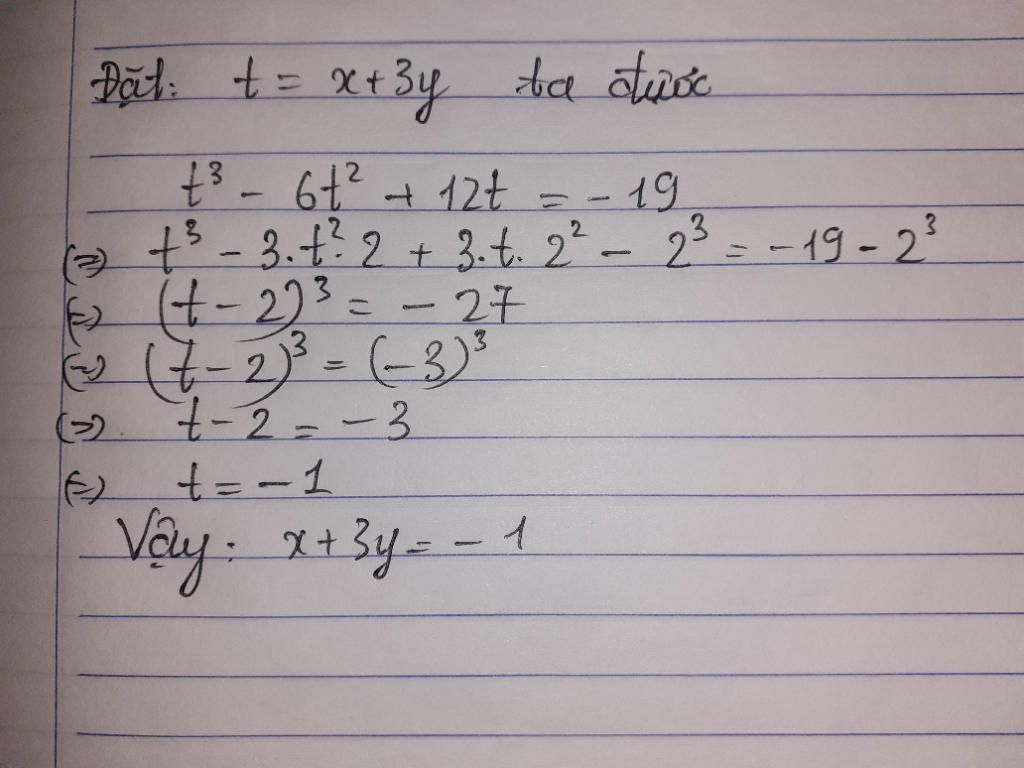 Đặt: t = x+3y ta được
t³ - 6t² + 12t = - 19
(=) t³ - 3.t².2 + 3.t.2² - 2³ = -19 - 2³
(=) (t-2)³ = - 27
(=) (t-2)³ = (-3)³
(=) t-2 = -3
(=) t = -1
Vậy: x+3y = - 1